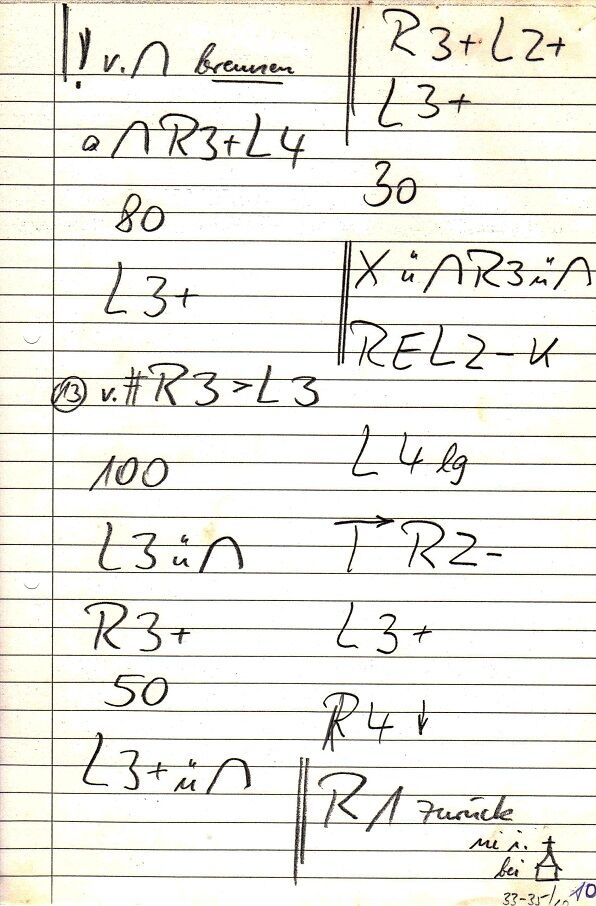 ! v. ∩ brennen
a ∩ R3+L4
80
L3+
13 v. # R3 > L3
100
L3 ü ∩
R3+
50
L3+ ü ∩
R3+L2+
L3+
30
X ü ∩ R3 ü ∩
REL2-K
L4 lg
→ R2-
L3+
R4 ↓
R1 zurück
bei
33-35/10